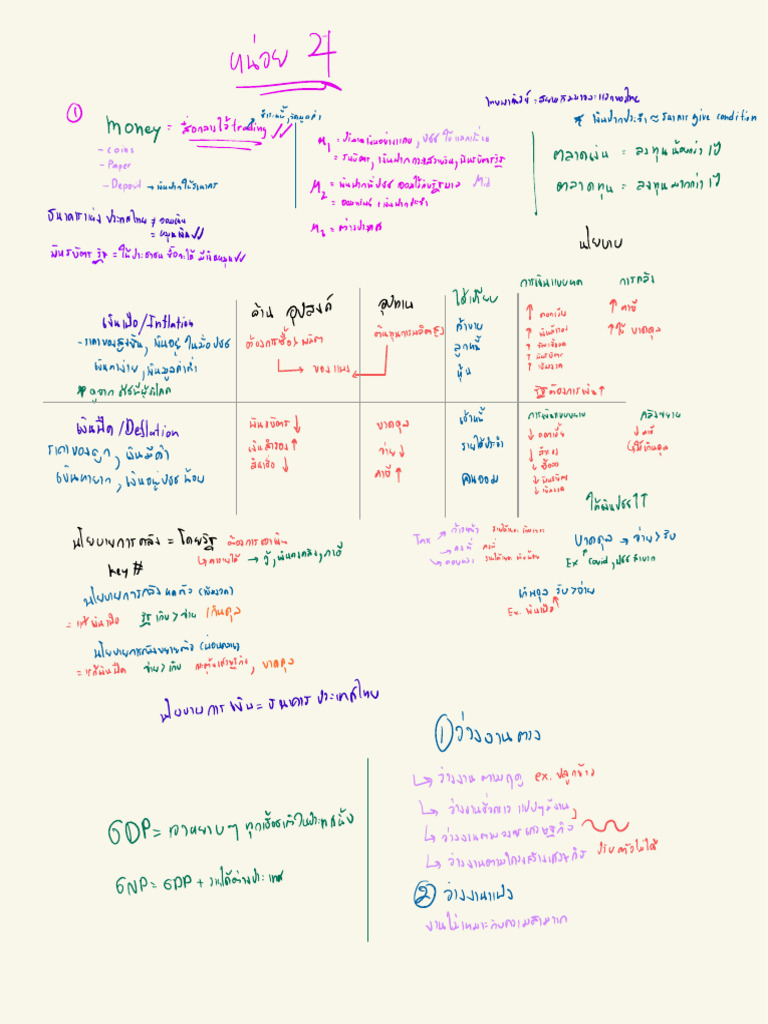 หน่วย 24
①
money = สื่อกลางใช้ trading
- coins
- Paper
- Deposit → เงินฝากใช้ธนาคาร
ธนาคารแห่งประเทศไทย
พันธบัตรรัฐ = ให้ประชาชนซื้อจะได้มีเงินหมุน
M₁
= ธนบัตร, เงินฝากกระแสรายวัน,
M₂
M₃ = ต่างประเทศ
* เงินฝากประจำ ≈ ธนาคาร give condition
ตลาดเงิน = ลงทุนน้อยกว่า 1ปี
ตลาดทุน = ลงทุนมากกว่า 1ปี
นโยบาย
ด้าน อุปสงค์
อุปทาน
ได้เปรียบ
การเงินแบบหด
การคลัง
เงินเฟ้อ/Inflation
- ราคาของสูงขึ้น, เงินอยู่ในมือปชช
เงินหาง่าย, เงินมูลค่าต่ำ
ต้องการซื้อ > ผลิต
→ ของแพง ←
ต้นทุนการผลิตสูง
ค้าขาย
ลูกหนี้
หุ้น
↑ ดอกเบี้ย
↑
↑
↑ พันธบัตร
↑
↑ ภาษี
↑ ใช้ ขาดดุล
รัฐต้องการเงิน ↑
เงินฝืด/Deflation
ราคาของถูก, เงินมีค่า
เงินหายาก, เงินอยู่ปชชน้อย
พันธบัตร ↓
เงินสำรอง ↑
สินเชื่อ ↓
ขาดดุล
จ่าย ↓
ภาษี ↑
เจ้าหนี้
รายได้ประจำ
คนออม
การเงินแบบขยาย
↓ ดอกเบี้ย
↓
↓ ซื้อลด
↓ พันธบัตร
↓
คลังขยาย
↓ ภาษี
ใช้เกินดุล
ให้เงินปชช ↑↑
นโยบายการคลัง = โดยรัฐ
ต้องการเงิน
↳ หารายได้ → กู้, เงินคงคลัง, ภาษี
key #
นโยบายการคลังหดตัว
= แก้เงินเฟ้อ รัฐ เก็บ > จ่าย เกินดุล
นโยบายการเงินขยายตัว
= แก้เงินฝืด จ่าย > เก็บ กระตุ้นเศรษฐกิจ, ขาดดุล
นโยบายการเงิน = ธนาคารประเทศไทย
Tax → ก้าวหน้า
→ คงที่ คงที่
→ ถดถอย
ขาดดุล → จ่าย > รับ
Ex covid, ปชชลำบาก
เกินดุล รับ > จ่าย
Ex. เงินเฟ้อ
GDP = เอาหยาบๆ
GNP = GDP + รายได้ต่างประเทศ
① ว่างงาน
↳ ว่างงานตามฤดู ex. ปลูกข้าว
↳ ว่างงานชั่วคราว
↳ ว่างงานตามวงจรเศรษฐกิจ
↳ ว่างงานตามโครงสร้างเศรษฐกิจ ปรับตัวไม่ได้
② ว่างงานแฝง
งานไม่เหมาะกับความสามารถ